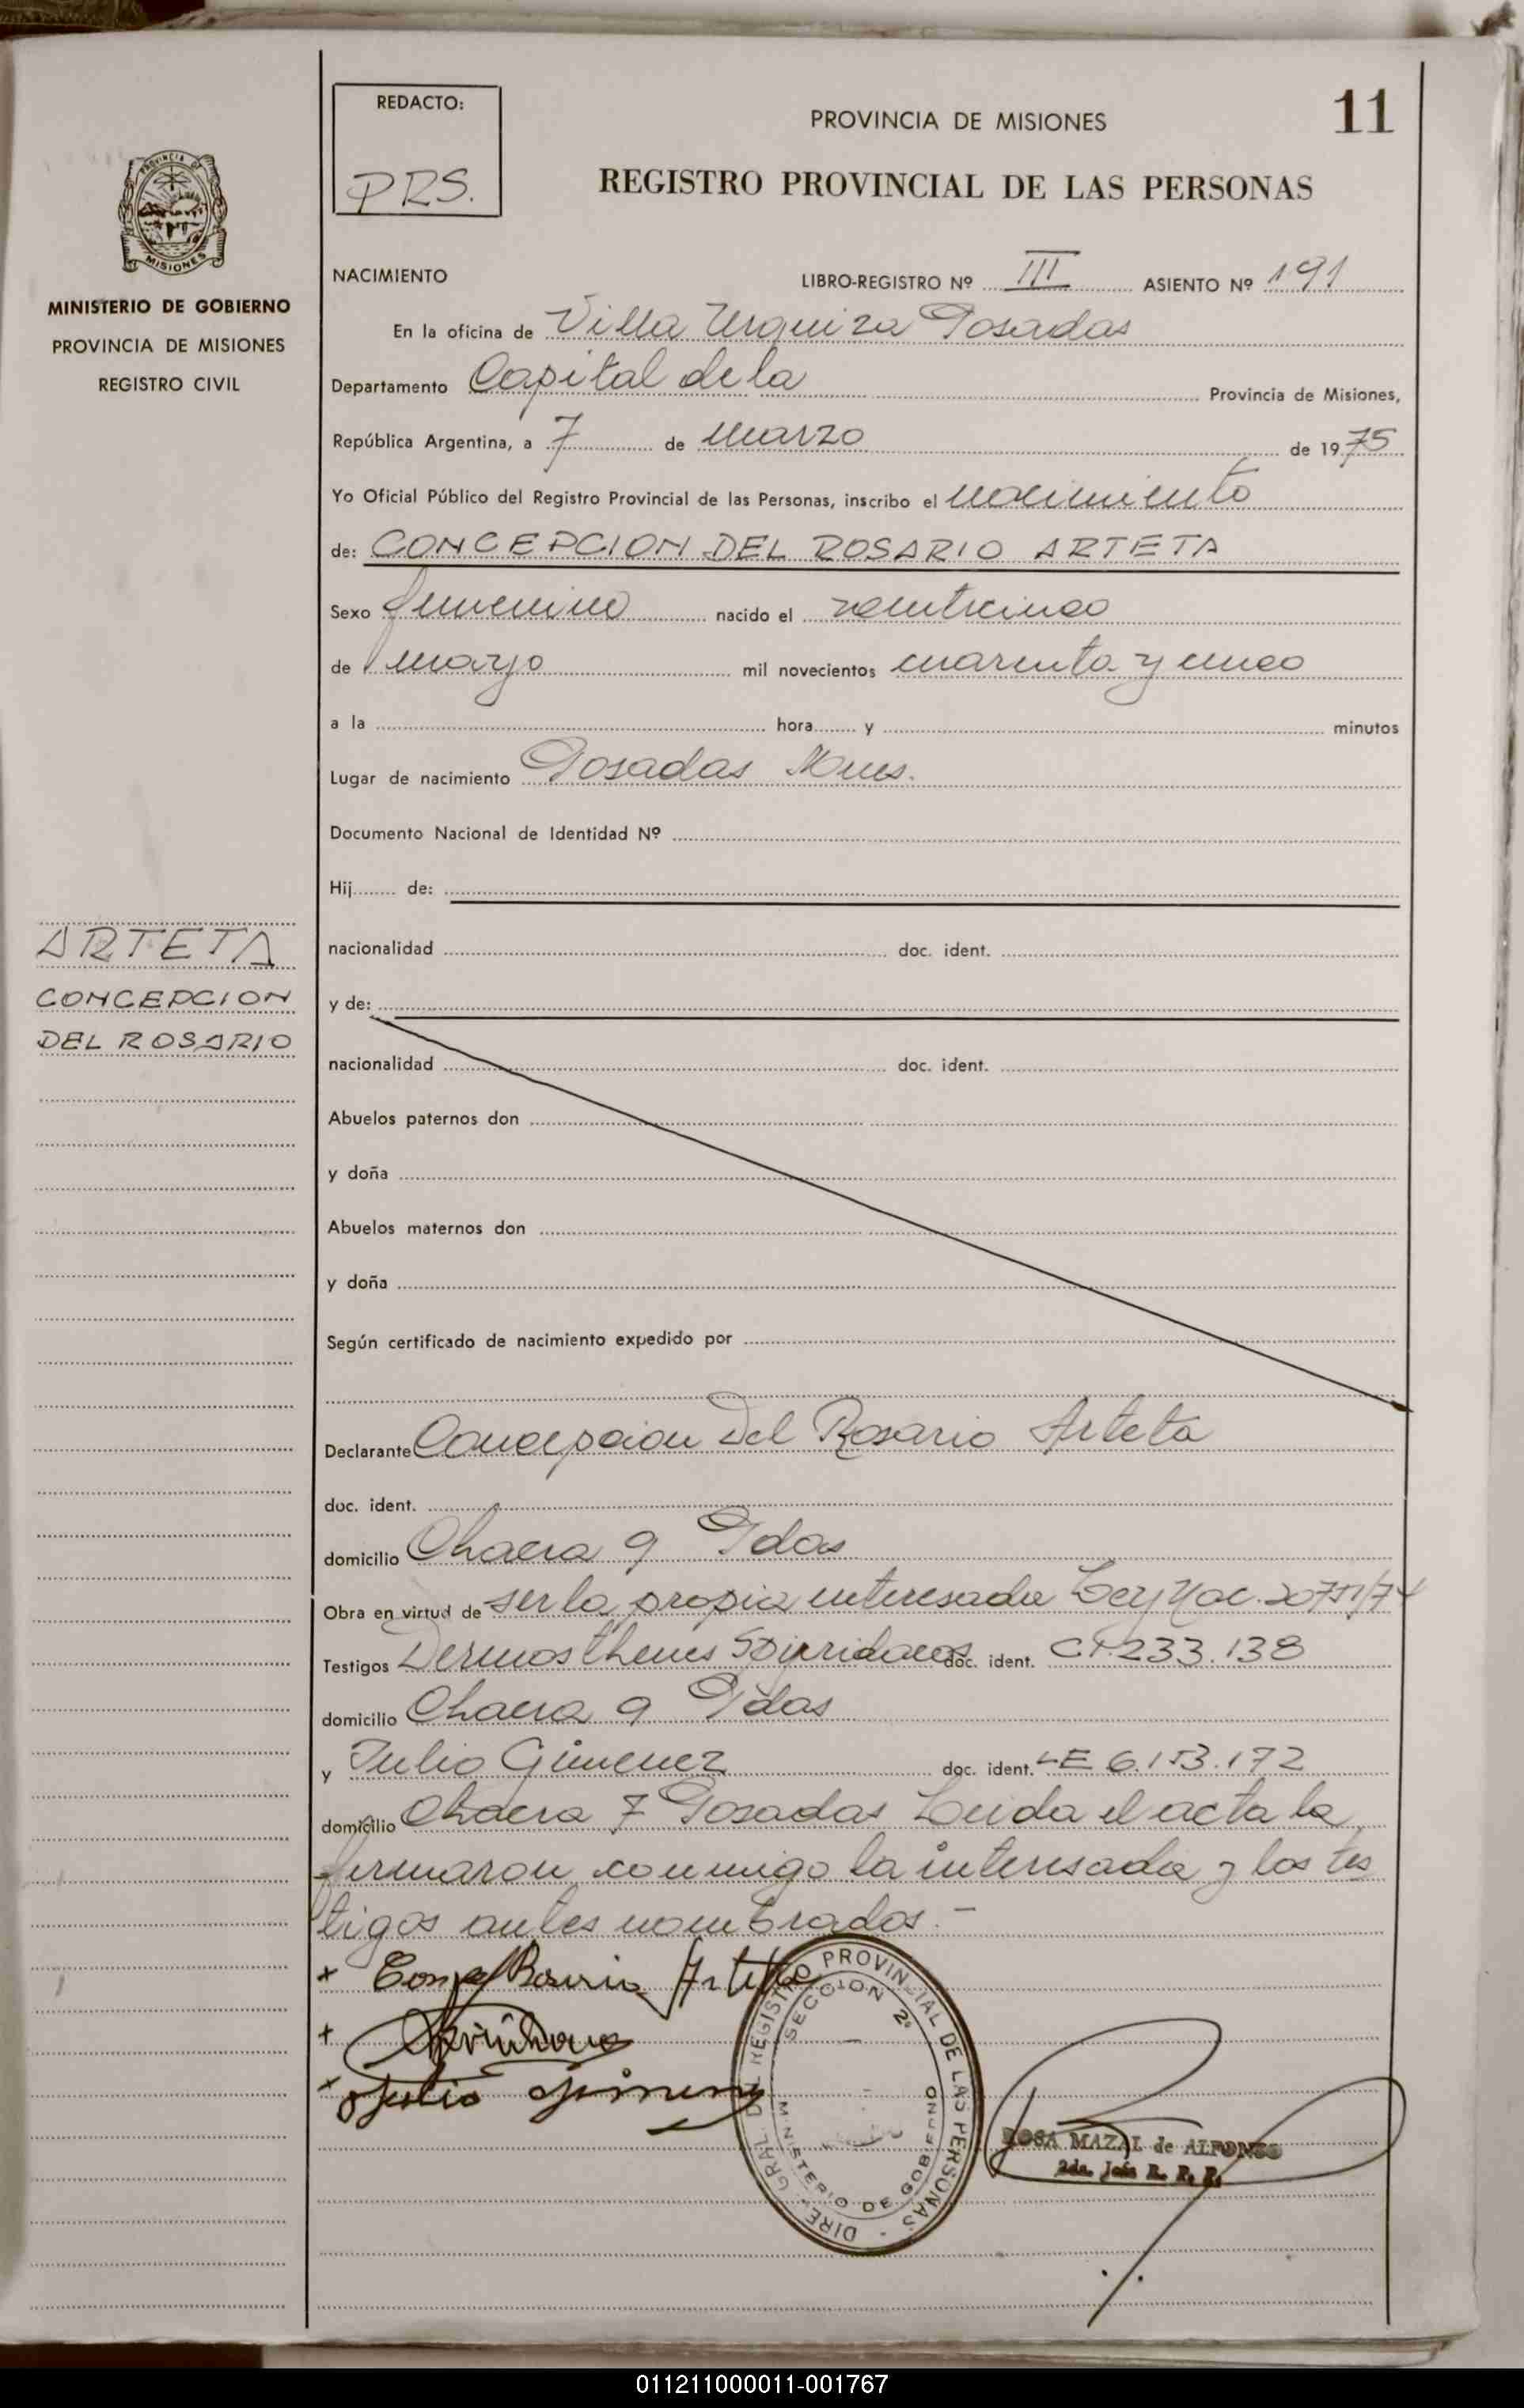 REDACTO:
PRS.
PROVINCIA DE MISIONES
11
REGISTRO PROVINCIAL DE LAS PERSONAS
PROVINCIA DE
MISIONES
MINISTERIO DE GOBIERNO
PROVINCIA DE MISIONES
REGISTRO CIVIL
NACIMIENTO LIBRO-REGISTRO Nº III ASIENTO Nº 191
En la oficina de Villa Urquiza Posadas
Departamento Capital de la Provincia de Misiones,
República Argentina, a 7 de marzo de 1975
Yo Oficial Público del Registro Provincial de las Personas, inscribo el nacimiento
de: CONCEPCION DEL ROSARIO ARTETA
Sexo femenino nacido el veinticinco
de mayo mil novecientos cuarenta y cinco
a la hora y minutos
Lugar de nacimiento Posadas Mnes.
Documento Nacional de Identidad Nº
Hij de:
ARTETA
CONCEPCION
DEL ROSARIO
nacionalidad doc. ident.
y de:
nacionalidad doc. ident.
Abuelos paternos don
y doña
Abuelos maternos don
y doña
Según certificado de nacimiento expedido por
Declarante Concepcion Del Rosario Arteta
doc. ident.
domicilio Chacra 9 Pdas
Obra en virtud de ser la propia interesada Ley Nac. 20751/74
Testigos Dermosthenes doc. ident. CI. 233.138
domicilio Chacra 9 Pdas
y Julio Gimenez doc. ident. LE 6.153.172
domicilio Chacra 7 Posadas Leida el acta la
firmaron conmigo la interesada y los tes
tigos antes nombrados.-
+ Rosario Arteta
+
+ Julio Gimenez
DIRE. GRAL. DEL REGISTRO PROVINCIAL DE LAS PERSONAS
SECCION 2º
MINISTERIO DE GOBIERNO
ROSA MAZAL de ALFONSO
2da. Jefa R. P. P.
011211000011-001767